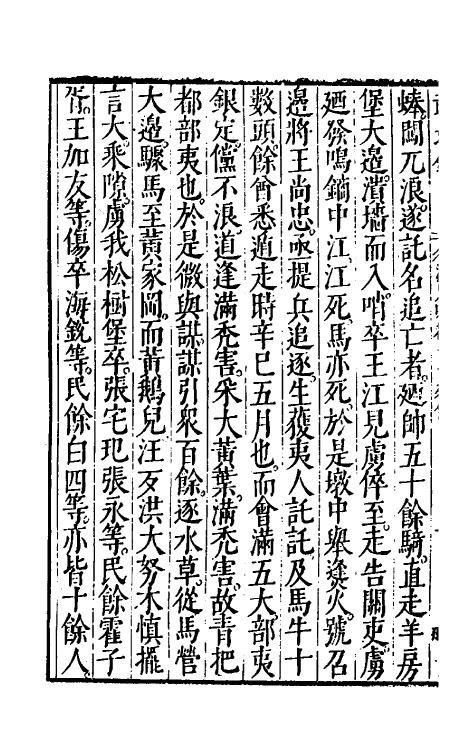 蜯闊兀浪遂託名追亡者廼帥五十餘騎直走羊房
堡大邉潰墻而入哨卒王江見虜倅至走告關吏虜
廼發鳴鏑中江江死馬亦死於是墩中舉燧火號召
邉將王尚忠亟提兵追逐生獲夷人託託及馬牛十
数頭餘曾悉遁走時辛巳五月也而會滿五大部夷
銀定儻不浪道逢滿禿害采大黄葉滿禿害故青把
都部夷也於是微與謀謀引衆百餘逐水草從馬營
大邉驟馬至黄家岡而黄鵝兒汪歹洪大努木慎擺
言大乘隙虜我松樹堡卒張宅玘張永等民餘霍子
胥王加友等傷卒海銳等民餘白四等亦皆十餘人